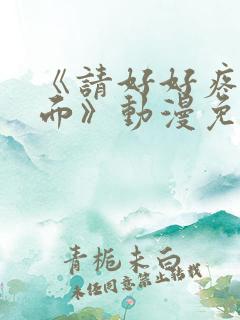 《請好好疼
而》動漫免
青梔未白
未任同意禁止转载